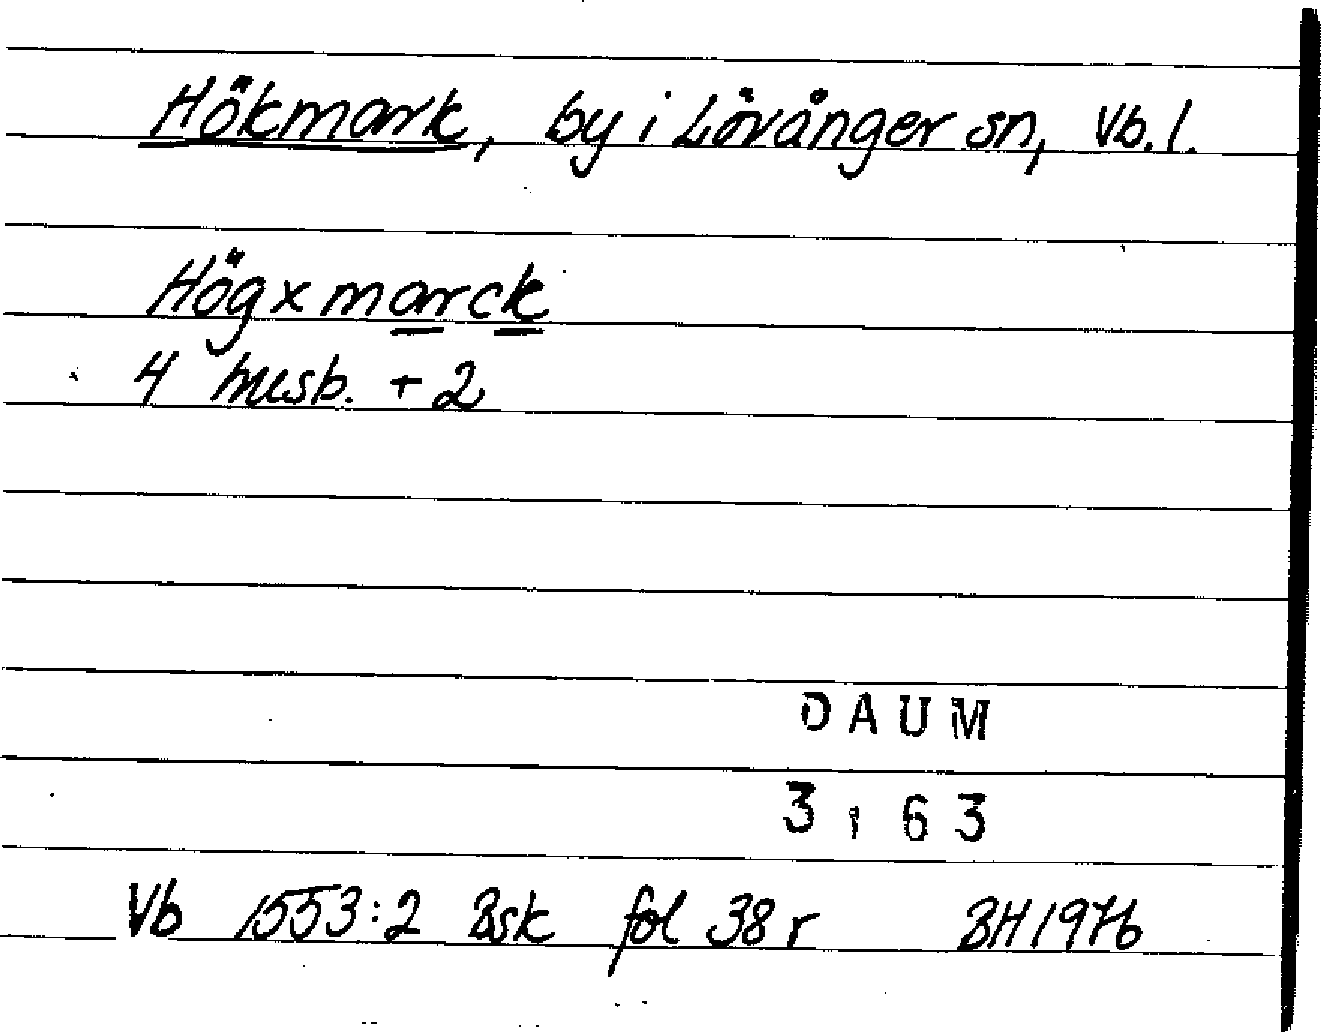 Hökmark, by i Lövånger sn, Vb. l.
Högxmarck
4 husb. + 2
DAUM
3:63
Vb 1553:2 Bsk fol 38 r BH 1976